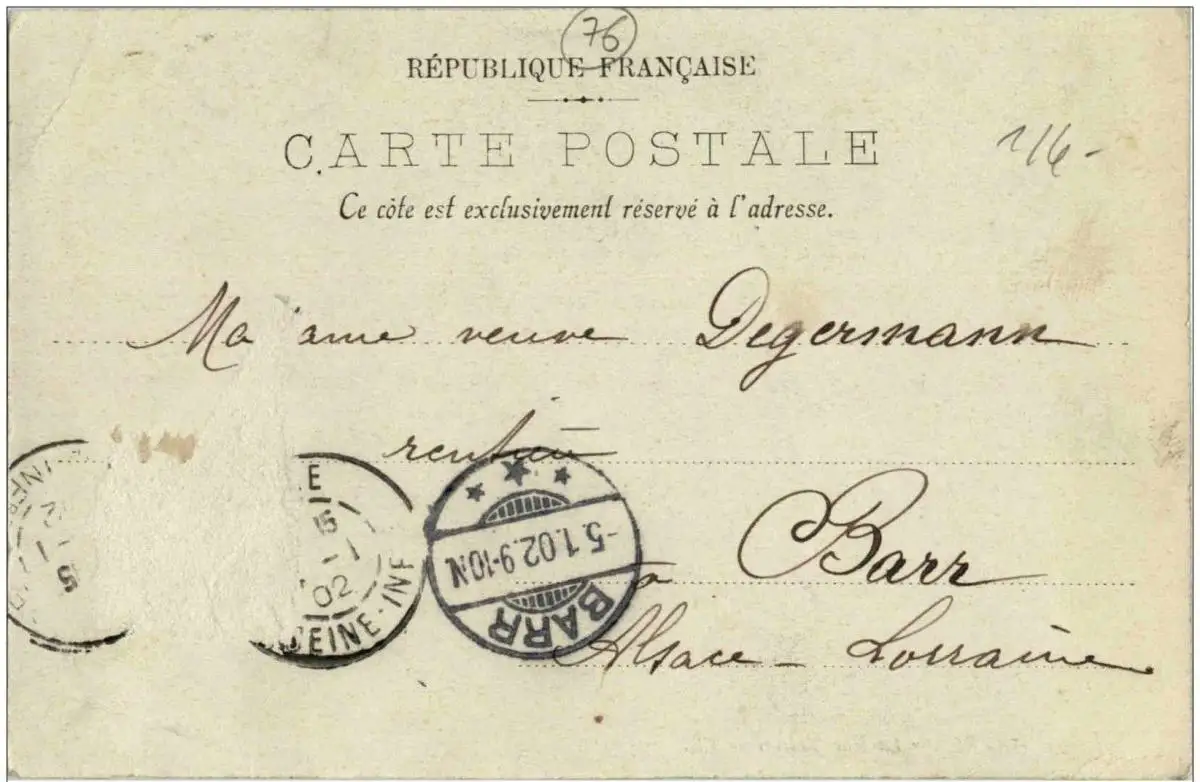 76
RÉPUBLIQUE FRANÇAISE
CARTE POSTALE
Ce côte est exclusivement réservé à l'adresse.
Ma ame veuve Degermann
à Barr
Alsace - Lorraine
E
5
1
02
SEINE-INF
BARR
-5.1.02.9-10N
INF